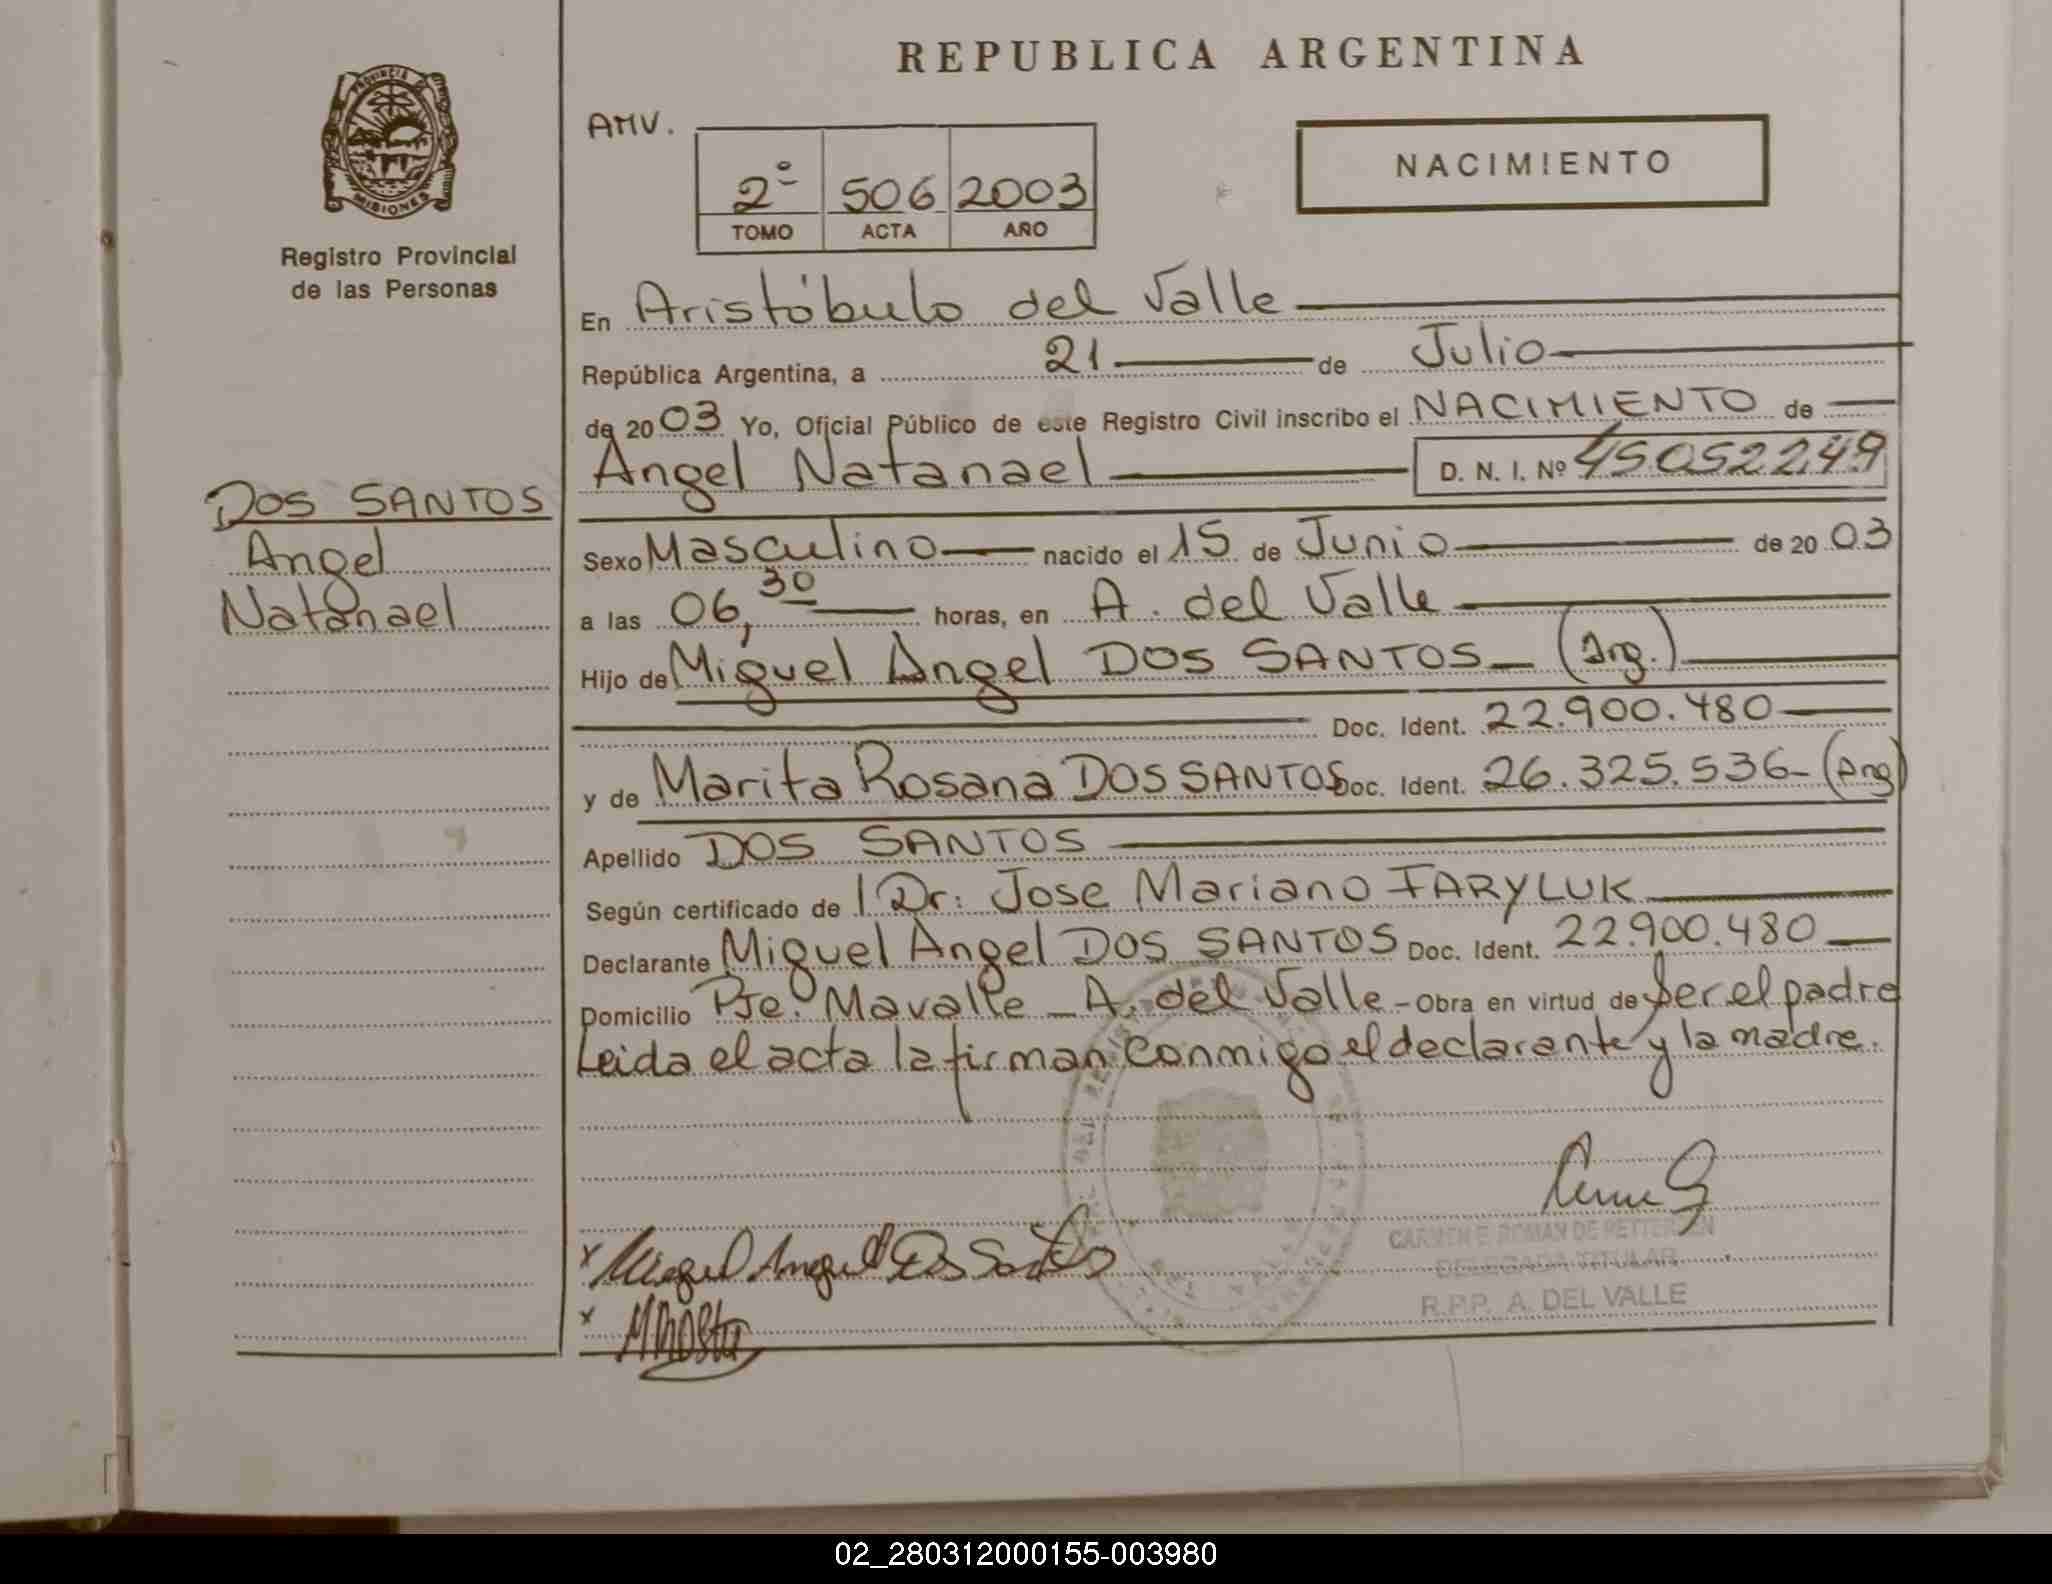 REPUBLICA ARGENTINA
PROVINCIA DE
MISIONES
Registro Provincial
de las Personas
AMV.
2º 506 2003
TOMO ACTA AÑO
NACIMIENTO
En Aristóbulo del Valle
República Argentina, a 21 de Julio
de 2003 Yo, Oficial Público de este Registro Civil inscribo el NACIMIENTO de
Angel Natanael D. N. I. Nº 45052249
DOS SANTOS
Angel
Natanael
Sexo Masculino nacido el 15 de Junio de 2003
a las 06,30 horas, en A. del Valle
Hijo de Miguel Angel DOS SANTOS (Arg.)
Doc. Ident. 22.900.480
y de Marita Rosana DOS SANTOS Doc. Ident. 26.325.536 (Arg)
Apellido DOS SANTOS
Según certificado de l Dr: Jose Mariano FARYLUK
Declarante Miguel Angel DOS SANTOS Doc. Ident. 22.900.480
Domicilio Pje. Mavalle - A. del Valle - Obra en virtud de Ser el padre
Leida el acta la firman conmigo el declarante y la madre.
CARMEN E. ROMAN DE PETTERSEN
DELEGADA TITULAR
R.P.P. A. DEL VALLE
x Miguel Angel Dos Santos
x
02_280312000155-003980